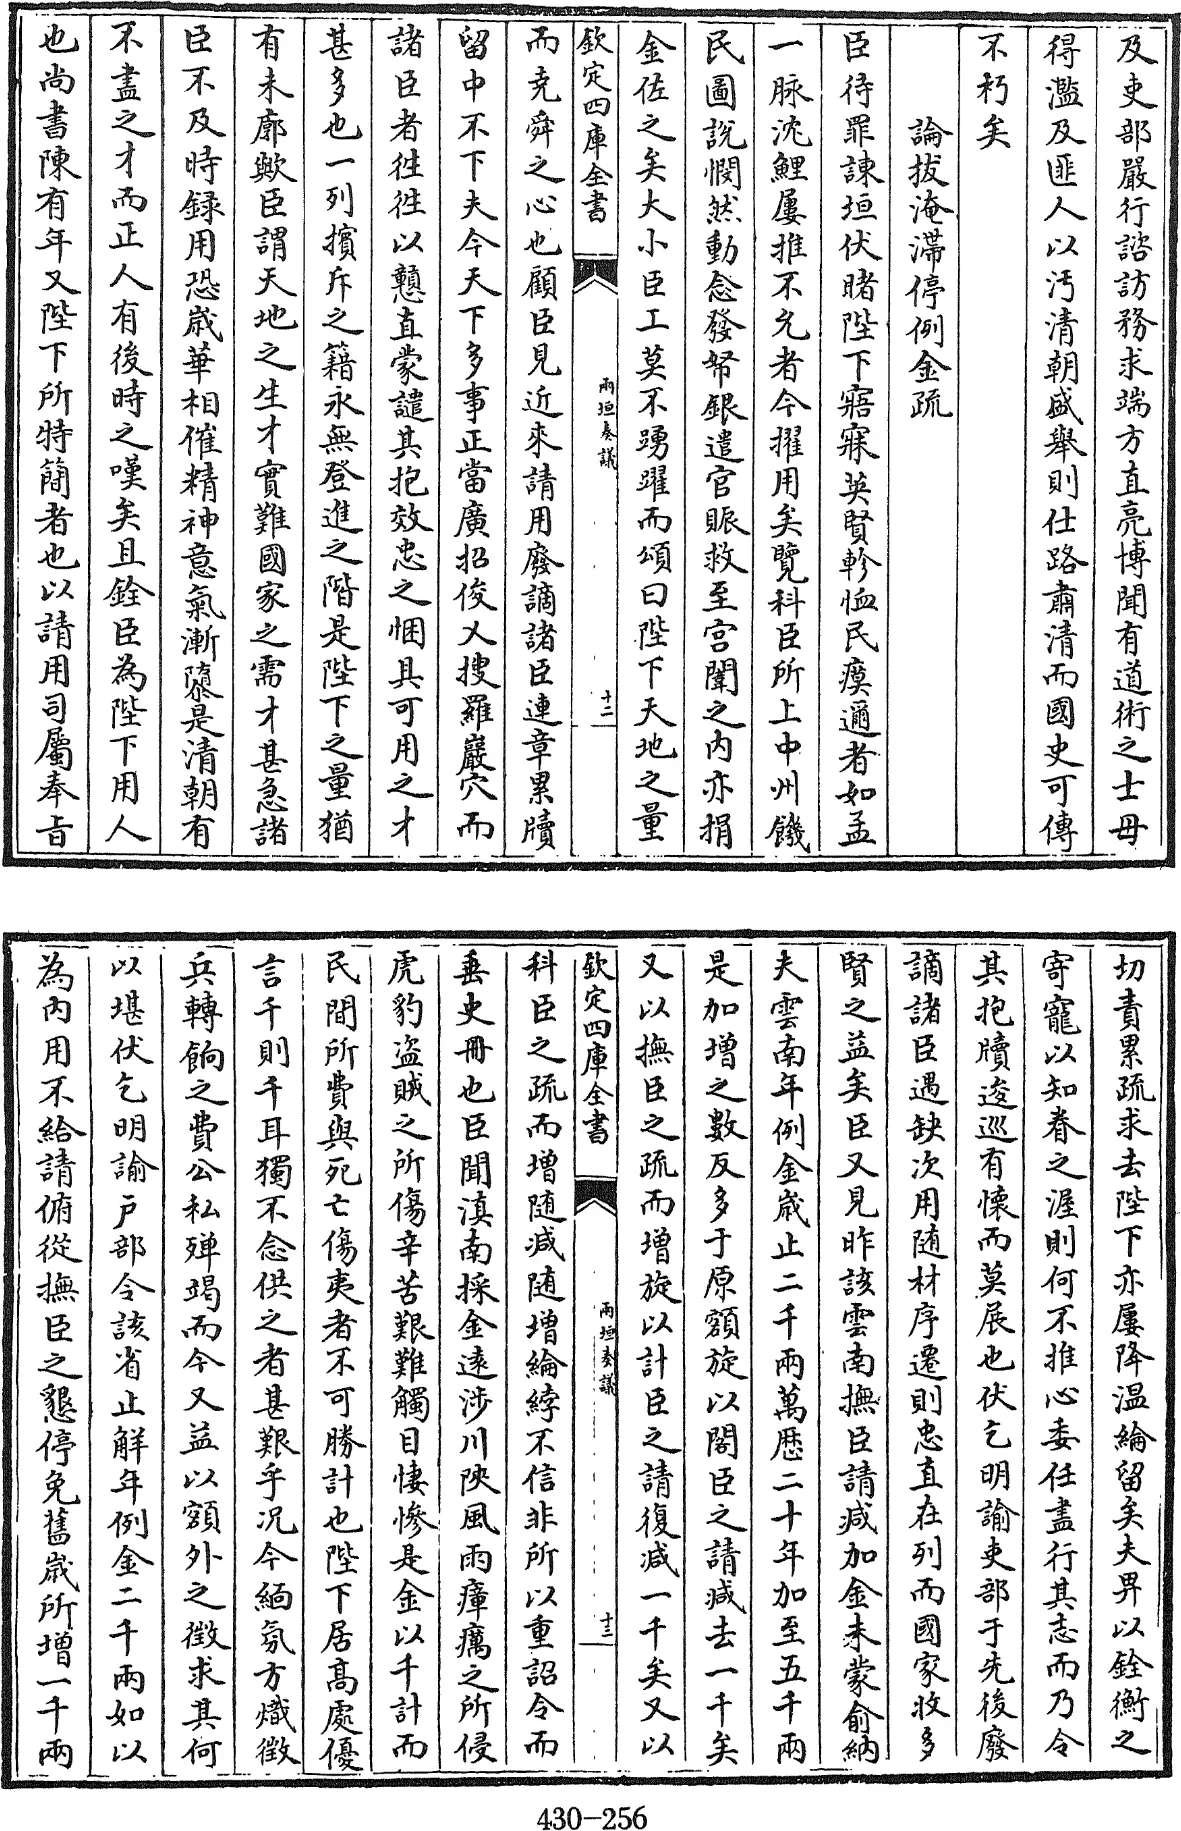 及吏部嚴行諮訪務求端方直亮博聞有道術之士毋
得濫及匪人以污清朝盛舉則仕路肅清而國史可傳
不朽矣
論拔淹滯停例金疏
臣待罪諫垣伏睹陛下寤寐英賢軫恤民瘼邇者如孟
一脉沈鯉屢推不允者今擢用矣覽科臣所上中州饑
民圖說憫然動念發帑銀遣官賑救至宫闈之内亦捐
金佐之矣大小臣工莫不踴躍而頌曰陛下天地之量
欽定四庫全書
兩垣奏議
十二
而堯舜之心也顧臣見近來請用廢謫諸臣連章累牘
留中不下夫今天下多事正當廣招俊乂搜羅巖穴而
諸臣者徃徃以戇直蒙譴其抱效忠之悃具可用之才
甚多也一列擯斥之籍永無登進之階是陛下之量猶
有未廓歟臣謂天地之生才實難國家之需才甚急諸
臣不及時録用恐歲華相催精神意氣漸隳是清朝有
不盡之才而正人有後時之嘆矣且銓臣為陛下用人
也尚書陳有年又陛下所特簡者也以請用司屬奉旨
切責累疏求去陛下亦屢降温綸留矣夫畀以銓衡之
寄寵以知眷之渥則何不推心委任盡行其志而乃令
其抱牘逡巡有懷而莫展也伏乞明諭吏部于先後廢
謫諸臣遇缺次用随材序遷則忠直在列而國家收多
賢之益矣臣又見昨該雲南撫臣請减加金未蒙俞納
夫雲南年例金歲止二千兩萬歷二十年加至五千兩
是加增之數反多于原額旋以閣臣之請減去一千矣
又以撫臣之疏而增旋以計臣之請復减一千矣又以
欽定四庫全書
兩垣奏議
十三
科臣之疏而增随减随增綸綍不信非所以重詔令而
垂史冊也臣聞滇南採金遠涉川陜風雨瘴癘之所侵
虎豹盜賊之所傷辛苦艱難觸目悽慘是金以千計而
民間所費與死亡傷夷者不可勝計也陛下居髙處優
言千則千耳獨不念供之者甚艱乎况今緬氛方熾徴
兵轉餉之費公私殫竭而今又益以額外之徴求其何
以堪伏乞明諭户部令該省止解年例金二千兩如以
為内用不給請俯從撫臣之懇停免舊歲所增一千兩
430-256